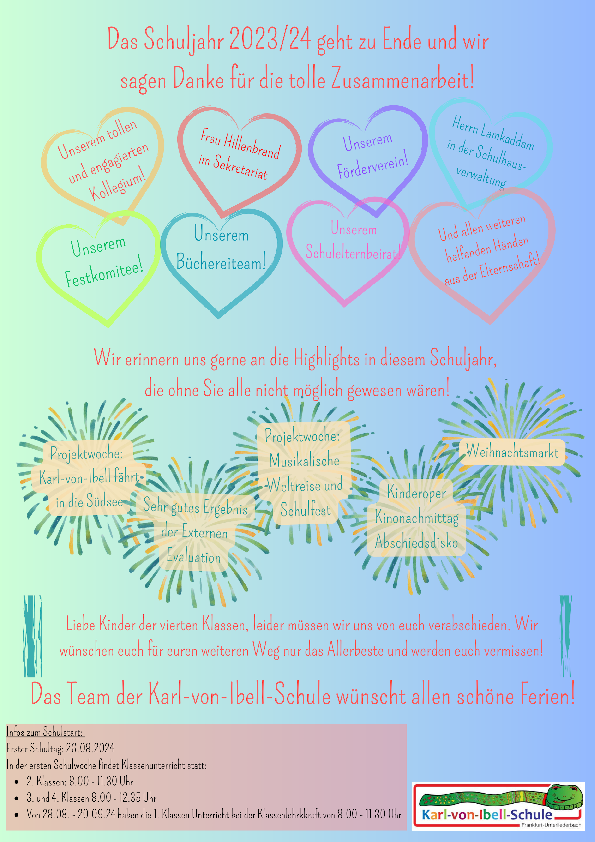 Das Schuljahr 2023/24 geht zu Ende und wir
sagen Danke für die tolle Zusammenarbeit!
Unserem tollen
und engagierten
Kollegium!
Frau Hillenbrand
im Sekretariat
Unserem
Förderverein!
Herrn Lamkaddam
in der Schulhaus-
verwaltung
Unserem
Festkomitee!
Unserem
Büchereiteam!
Unserem
Schulelternbeirat!
Und allen weiteren
helfenden Händen
aus der Elternschaft!
Wir erinnern uns gerne an die Highlights in diesem Schuljahr,
die ohne Sie alle nicht möglich gewesen wären!
Projektwoche:
Karl-von-Ibell fährt
in die Südsee
Sehr gutes Ergebnis
der Externen
Evaluation
Projektwoche:
Musikalische
Weltreise und
Schulfest
Kinderoper
Kinonachmittag
Abschiedsdisko
Weihnachtsmarkt
Liebe Kinder der vierten Klassen, leider müssen wir uns von euch verabschieden. Wir
wünschen euch für euren weiteren Weg nur das Allerbeste und werden euch vermissen!
Das Team der Karl-von-Ibell-Schule wünscht allen schöne Ferien!
Infos zum Schulstart:
Erster Schultag: 26.08.2024
In der ersten Schulwoche findet Klassenunterricht statt:
• 2. Klassen: 8.00 - 11.30 Uhr
• 3. und 4. Klassen 9.00 - 12.35 Uhr
• Von 28.08. - 20.09.24 haben die 1. Klassen Unterricht bei der Klassenlehrkraft von 8.00 - 11.30 Uhr
Karl-von-Ibell-Schule
Frankfurt-Unterliederbach